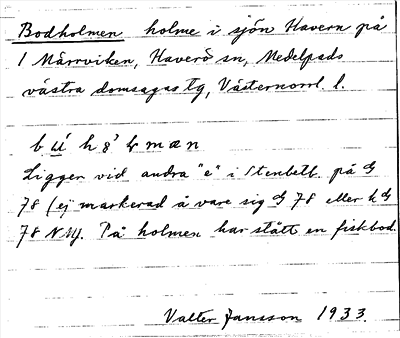 Bodholmen holme i sjön Havern på
1 Märrviken, Haverö sn, Medelpads
västra domsagas tg, Västernorrl. l.
Ligger vid andra "e" i Stenbett. på G
78 (ej markerad å vare sig G 78 eller h G
78 NV). På holmen har stått en fiskbod.
Valter Jansson 1933.